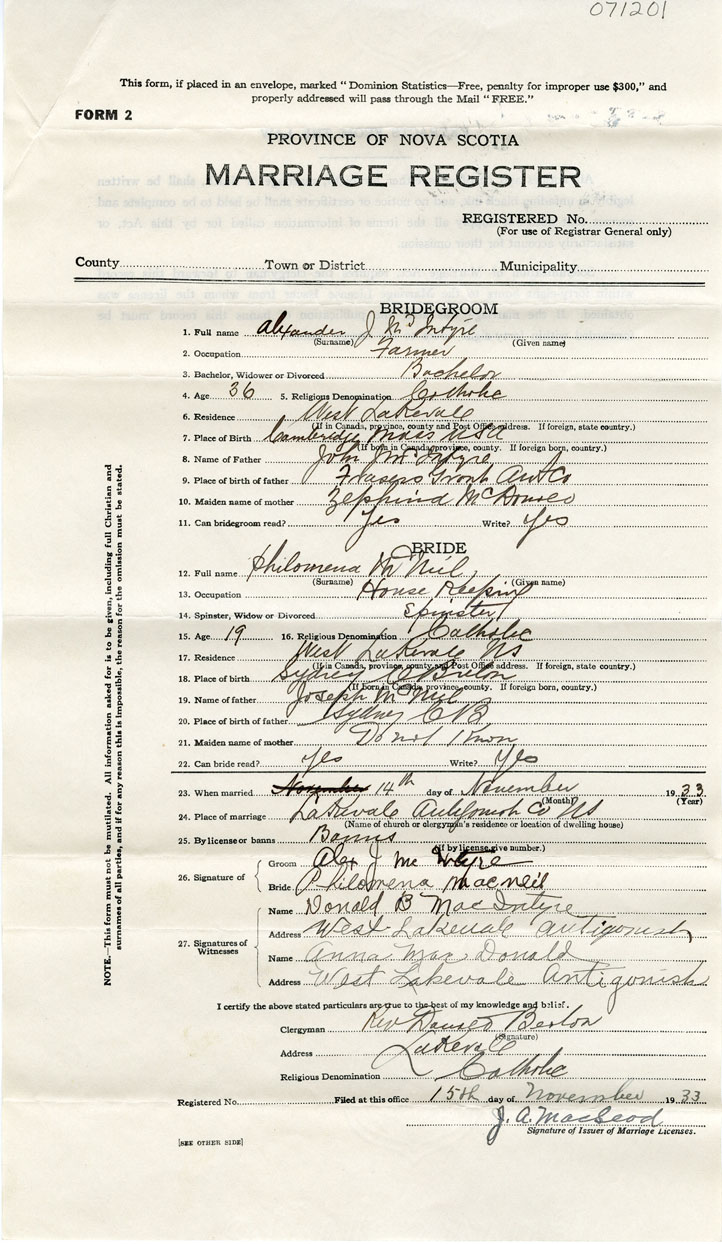 071201
This form, if placed in an envelope, marked "Dominion Statistics—Free, penalty for improper use $300," and
properly addressed will pass through the Mail "FREE."
FORM 2
PROVINCE OF NOVA SCOTIA
MARRIAGE REGISTER
REGISTERED No.
(For use of Registrar General only)
County Town or District Municipality
BRIDEGROOM
1. Full name Alexander J McIntyre
(Surname) (Given name)
2. Occupation Farmer
3. Bachelor, Widower or Divorced Bachelor
4. Age 36 5. Religious Denomination Catholic
6. Residence West Lakevale
(If in Canada, province, county and Post Office address. If foreign, state country.)
7. Place of Birth Cambridge Mass USA
(If born in Canada, province, county. If foreign born, country.)
8. Name of Father John McIntyre
9. Place of birth of father Frasers Grant Ant Co
10. Maiden name of mother
11. Can bridegroom read? Yes Write? Yes
BRIDE
12. Full name Philomena McNeil
(Surname) (Given name)
13. Occupation House Keeping
14. Spinster, Widow or Divorced Spinster
15. Age 19 16. Religious Denomination Catholic
17. Residence West Lakevale NS
(If in Canada, province, county and Post Office address. If foreign, state country.)
18. Place of birth Sydney C Breton
(If born in Canada, province, county. If foreign born, country.)
19. Name of father Joseph McNeil
20. Place of birth of father Sydney C B
21. Maiden name of mother Do not Know
22. Can bride read? Yes Write? Yes
23. When married November 14th day of November 1933
(Month) (Year)
24. Place of marriage Lakevale Antigonish Co NS
(Name of church or clergyman's residence or location of dwelling house)
25. By license or banns Banns
(If by license, give number.)
26. Signature of
Groom Alex J McIntyre
Bride Philomena MacNeil
27. Signatures of Witnesses
Name Donald B MacIntyre
Address West Lakevale Antigonish
Name Anna MacDonald
Address West Lakevale Antigonish
I certify the above stated particulars are true to the best of my knowledge and belief.
Clergyman Rev
(Signature)
Address Lakevale
Religious Denomination Catholic
Registered No. Filed at this office 15th day of November 1933
J. A. MacLeod
Signature of Issuer of Marriage Licenses.
[SEE OTHER SIDE]
NOTE.—This form must not be mutilated. All information asked for is to be given, including full Christian and
surnames of all parties, and if for any reason this is impossible, the reason for the omission must be stated.